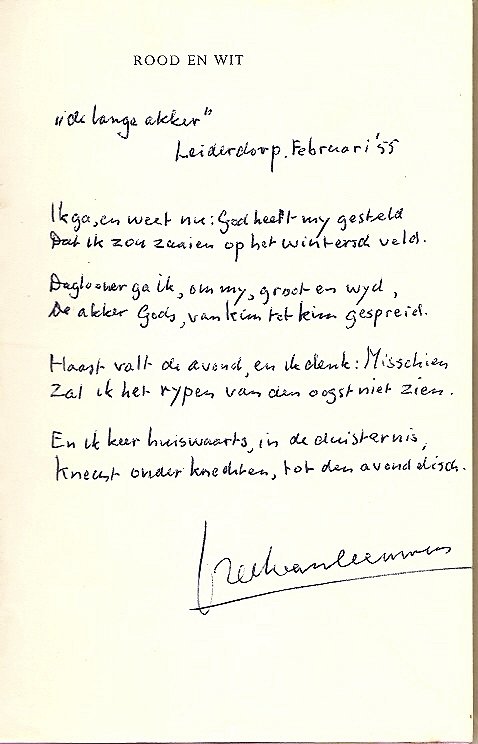 ROOD EN WIT
„de lange akker"
Leiderdorp. Februari '55
Ik ga, en weet nu: God heeft my gesteld
Dat ik zou zaaien op het wintersch veld.
Daglooner ga ik, om my, groot en wyd,
De akker Gods, van kim tot kim gespreid.
Haast valt de avond, en ik denk: Misschien
Zal ik het rypen van den oogst niet zien.
En ik keer huiswaarts, in de duisternis,
Knecht onder knechten, tot den avonddisch.